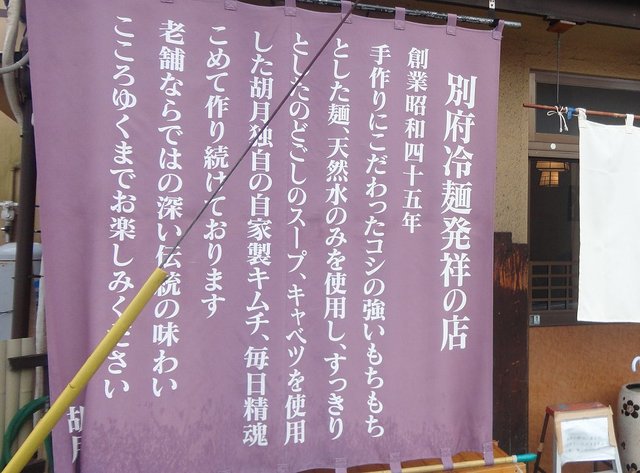 別府冷麺発祥の店
創業昭和四十五年
手作りにこだわったコシの強いもちもち
とした麺、天然水のみを使用し、すっきり
としたのどごしのスープ、キャベツを使用
した胡月独自の自家製キムチ、毎日精魂
こめて作り続けております
老舗ならではの深い伝統の味わい
こころゆくまでお楽しみください
胡月